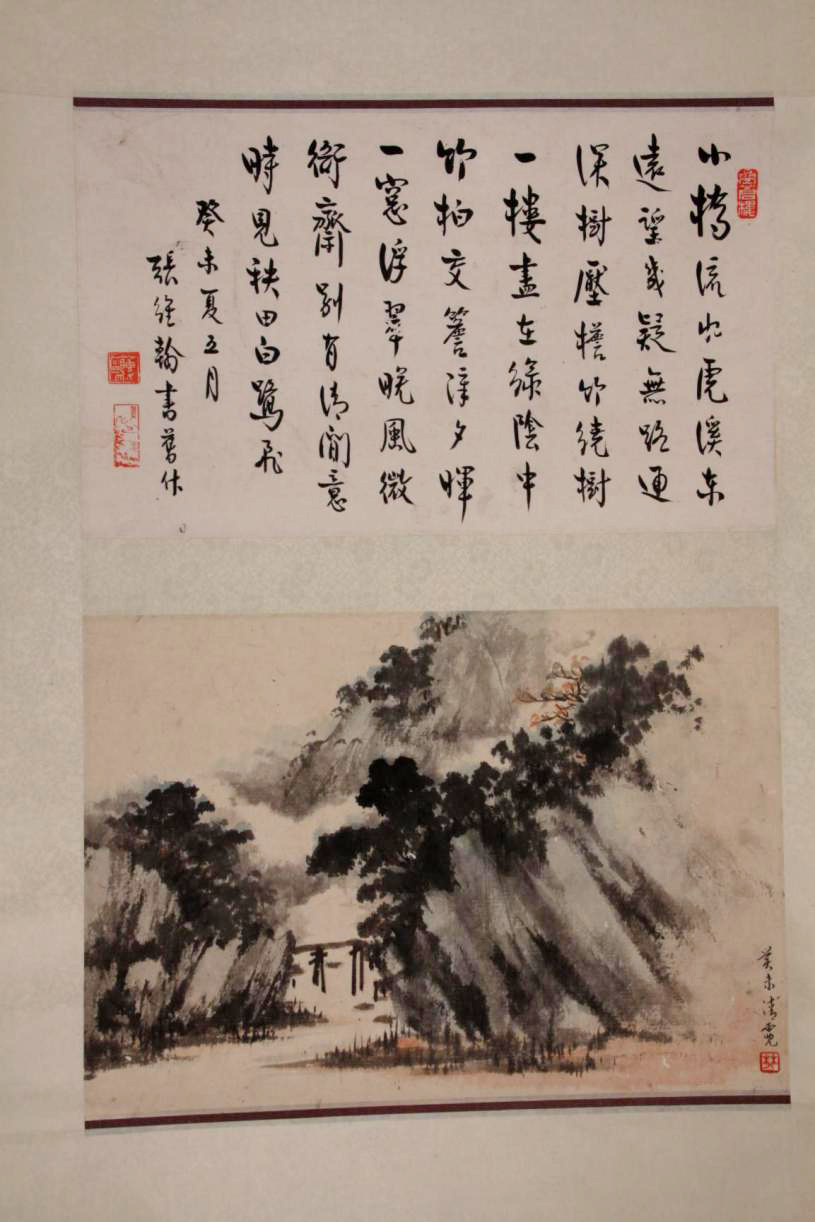 小橋流水虎溪東
遠望或疑無路通
深樹壓檐竹繞樹
一樓盡在綠陰中
竹柏交簷淨夕暉
一窗浮翠晚風微
衙齋別有清閒意
時見秧田白鷺飛
癸未夏五月
張維翰書舊作
癸未清霓